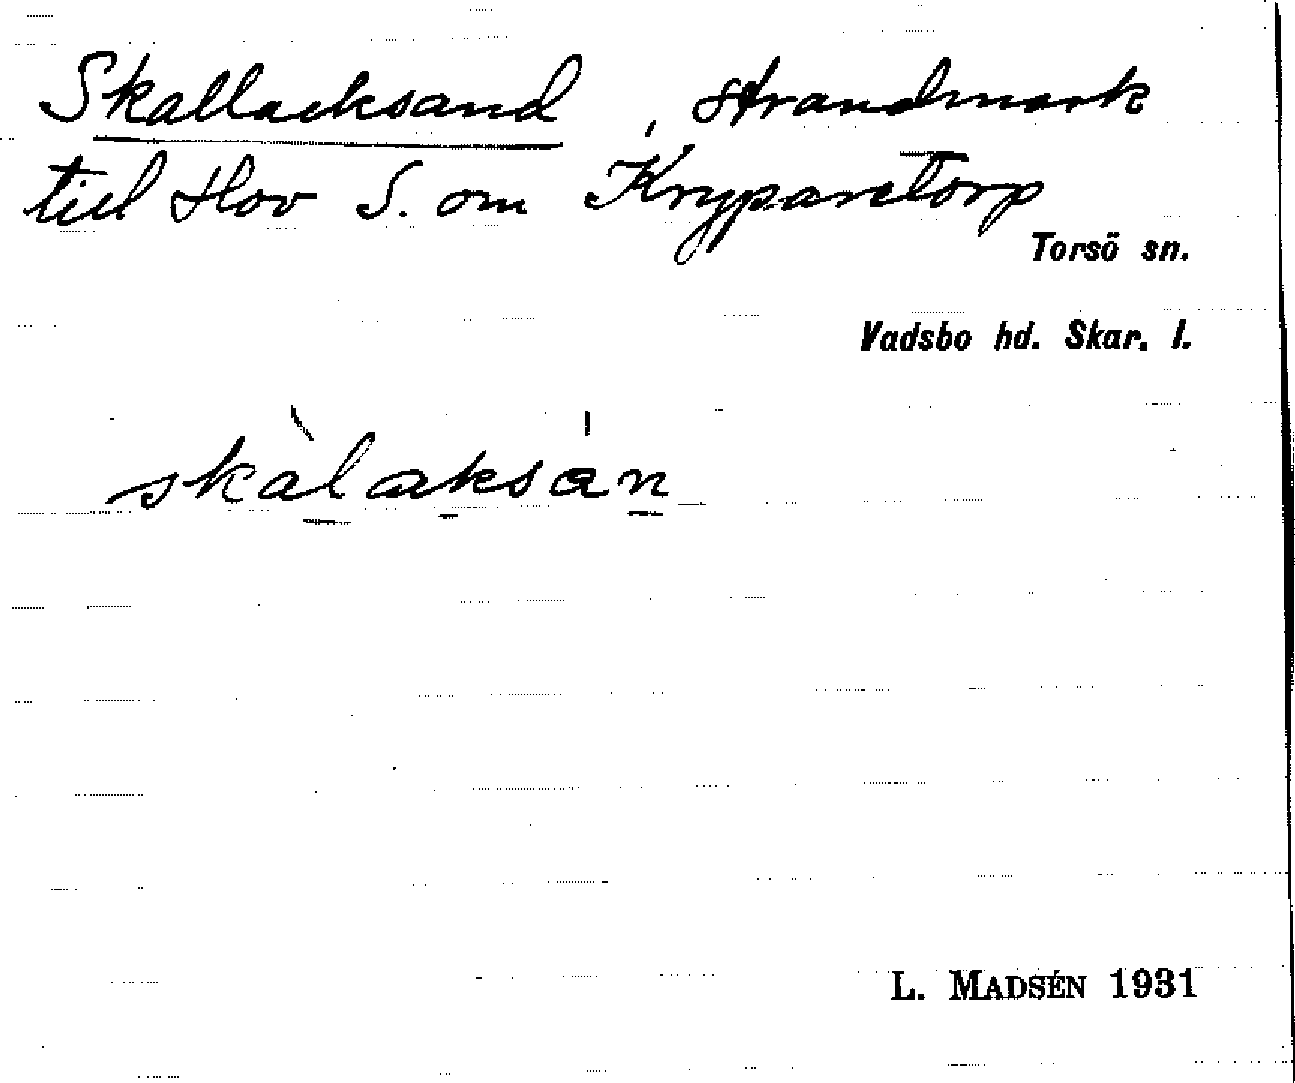 Skallacksand, strandmark
till Hov S. om Kryparetorp
Torsö sn.
Vadsbo hd. Skar. l.
skàlaksán
L. MADSÉN 1931